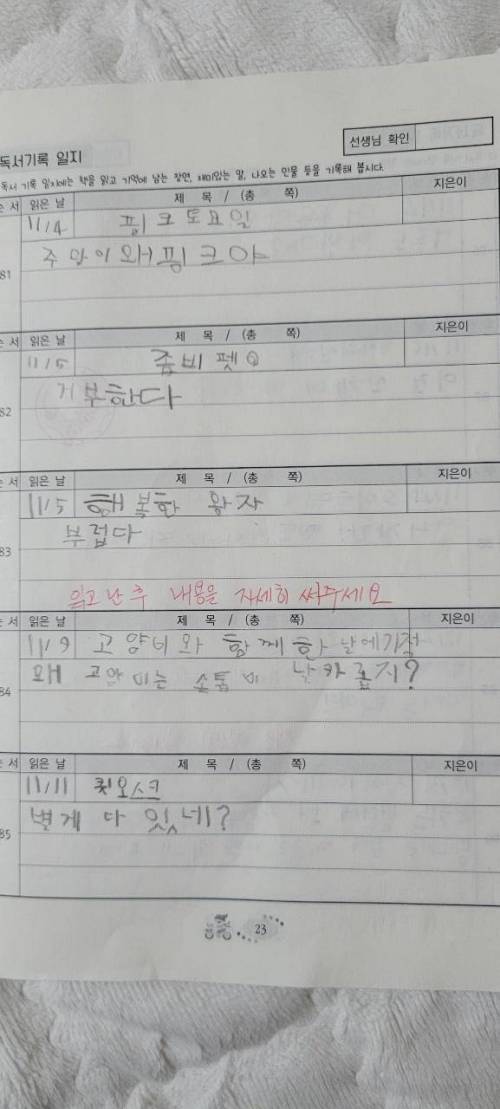 독서기록 일지
선생님 확인
독서 기록 일지에는 책을 읽고 기억에 남는 장면, 재미있는 말, 나오는 인물 등을 기록해 봅시다.
는 서 읽은 날 제 목 / (총 쪽) 지은이
11/4 핑크토요일
81 주말이 왜 핑크야
는 서 읽은 날 제 목 / (총 쪽) 지은이
11/5 좀비펫
82 거부한다
는 서 읽은 날 제 목 / (총 쪽) 지은이
11/5 해복한 왕자
83 부럽다
읽고 난 후 내용을 자세히 써주세요
는 서 읽은 날 제 목 / (총 쪽) 지은이
11/9 고양이와 함께 한 날에
84 왜 고양이는 손톱이 날카롭지?
는 서 읽은 날 제 목 / (총 쪽) 지은이
11/11 킷오스크
85 별게 다 있네?
23